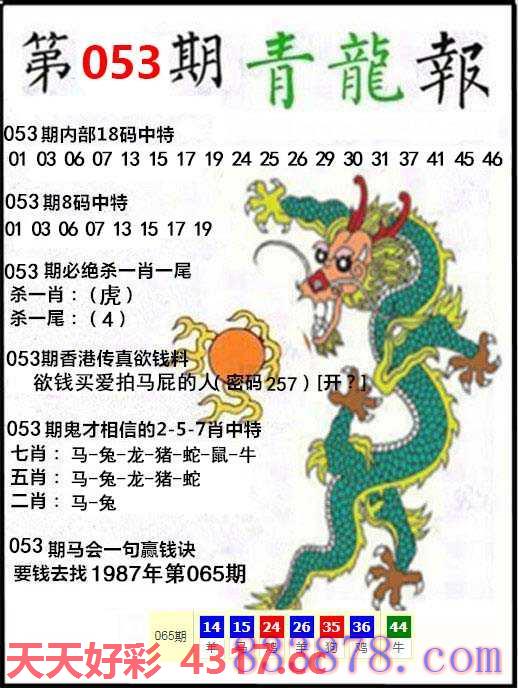 第053期 青龍報
053期内部18码中特
01 03 06 07 13 15 17 19 24 25 26 29 30 31 37 41 45 46
053期8码中特
01 03 06 07 13 15 17 19
053期必绝杀一肖一尾
杀一肖：(虎)
杀一尾：(4)
053期香港传真欲钱料
欲钱买爱拍马屁的人(密码257)[开？]
053期鬼才相信的2-5-7肖中特
七肖：马-兔-龙-猪-蛇-鼠-牛
五肖：马-兔-龙-猪-蛇
二肖：马-兔
053期马会一句赢钱诀
要钱去找1987年第065期
065期 14 15 24 26 35 36 44
羊 马 鸡 羊 狗 鸡 牛
天天好彩 4317.cc
878.com